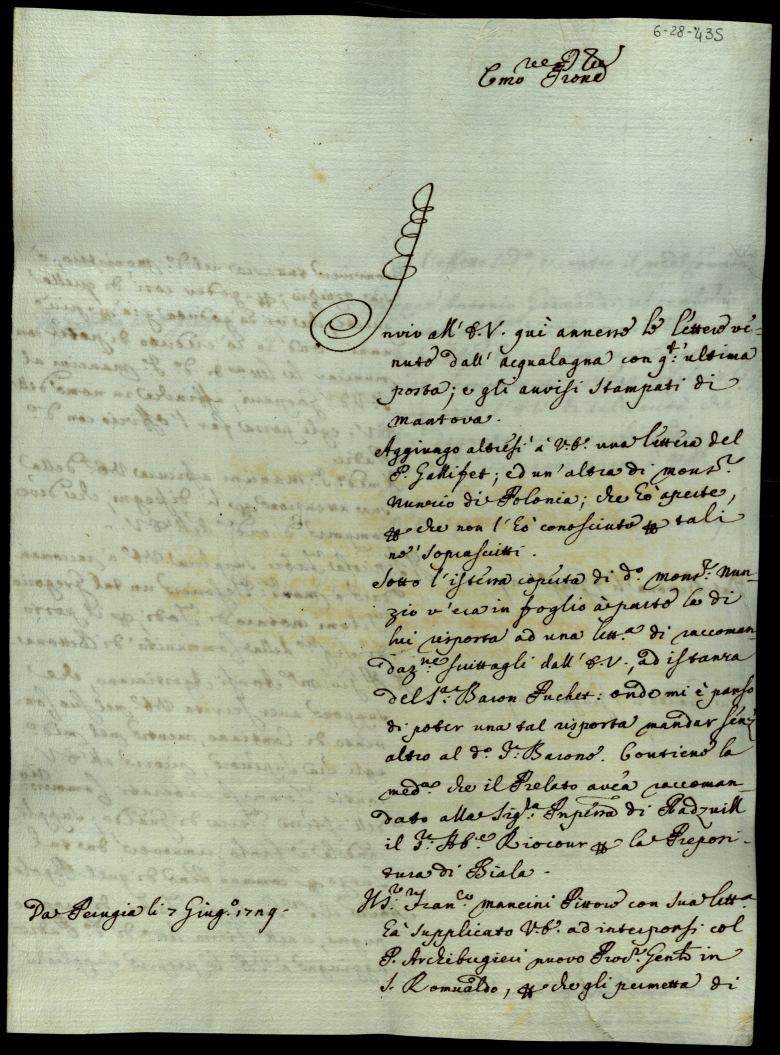 6-28-435
Emo re e
Prone
Invio all' E.V. qui annesse le lettere ve-
nute dall' acqualagna con qt: ultima
posta; e gli avvisi stampati di
Mantova.
Aggiungo altresi à V.E. una lettera del
P. Gallifet; ed un' altra di monsr.
Nunzio di Polonia; che hò aperte,
che non l' hò conosciute tali
ne' soprascritti.
Sotto l' istessa coperta di do. monsr. Nun-
zio v' era in foglio à parte la di
lui risposta ad una letta. di raccoman-
dazne. scrittagli dall' E.V., ad istanza
del Sr. Baron Puchet: onde mi è parso
di poter una tal risposta mandar senz'
altro al do. Sr. Barone. Contiene la
meda. che il Prelato avea raccoman-
dato alla Siga. Pnpessa di Radzvill
il Sr. Abe. Riocour la Preposi-
tura di Biala.
Il Sr. Franco. Mancini Pittore con sua letta.
hà supplicato V.E. ad interporsi col
P. Archibugieri nuovo Procr. Genle in
S. Romualdo, che gli permetta di
Da Perugia li 7 Giugo. 1729.